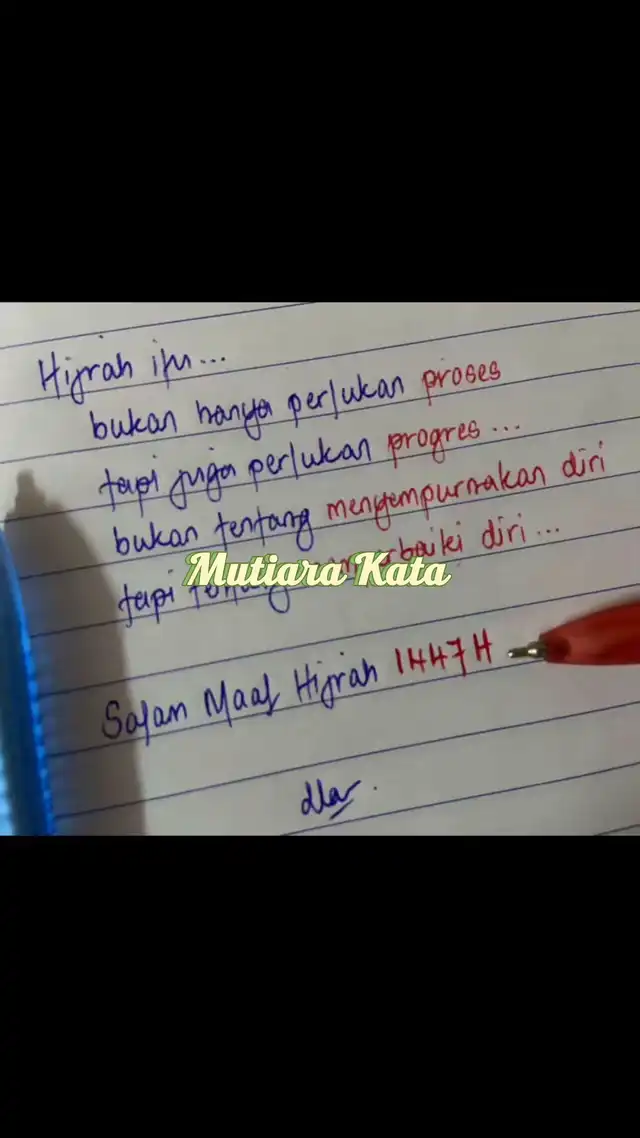 Hijrah itu...
bukan hanya perlukan proses
tapi juga perlukan progres...
bukan tentang menyempurnakan diri
tapi diri...
Mutiara Kata
Salam Maal Hijrah 1447H